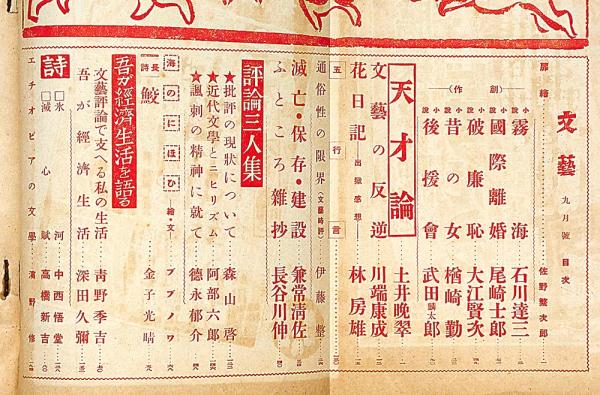 文藝 九月號 目次
扉繪 佐野繁次郎
(創作)
小說 霧海 石川達三
小說 國際離婚 尾崎士郎
小說 破廉恥 大江賢次
小說 昔の女 楢崎勤
小說 後援會 武田麟太郎
天才論 土井晩翠
文藝の反逆 川端康成
花日記(出獄感想) 林房雄
五行言
通俗性の限界(文藝時評) 伊藤整
滅亡・保存・建設 兼常淸佐
ふところ雜抄 長谷川伸
評論三人集
★批評の現狀について 森山啓
★近代文學とニヒリズム 阿部六郎
★諷刺の精神に就て 德永郁介
海のにほひ 繪・文 ブブノワ
長詩 鮫 金子光晴
吾が經濟生活を語る
文藝評論で支へる私の生活 靑野季吉
吾が經濟生活 深田久彌
詩
□氷河 中西悟堂
□滅心賦 高橋新吉
エチオピアの文學 濱野修